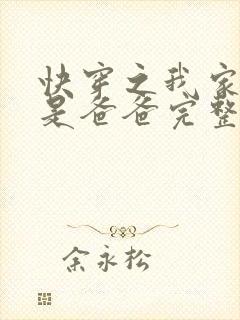 快穿之我家
是爸爸完整
余永松